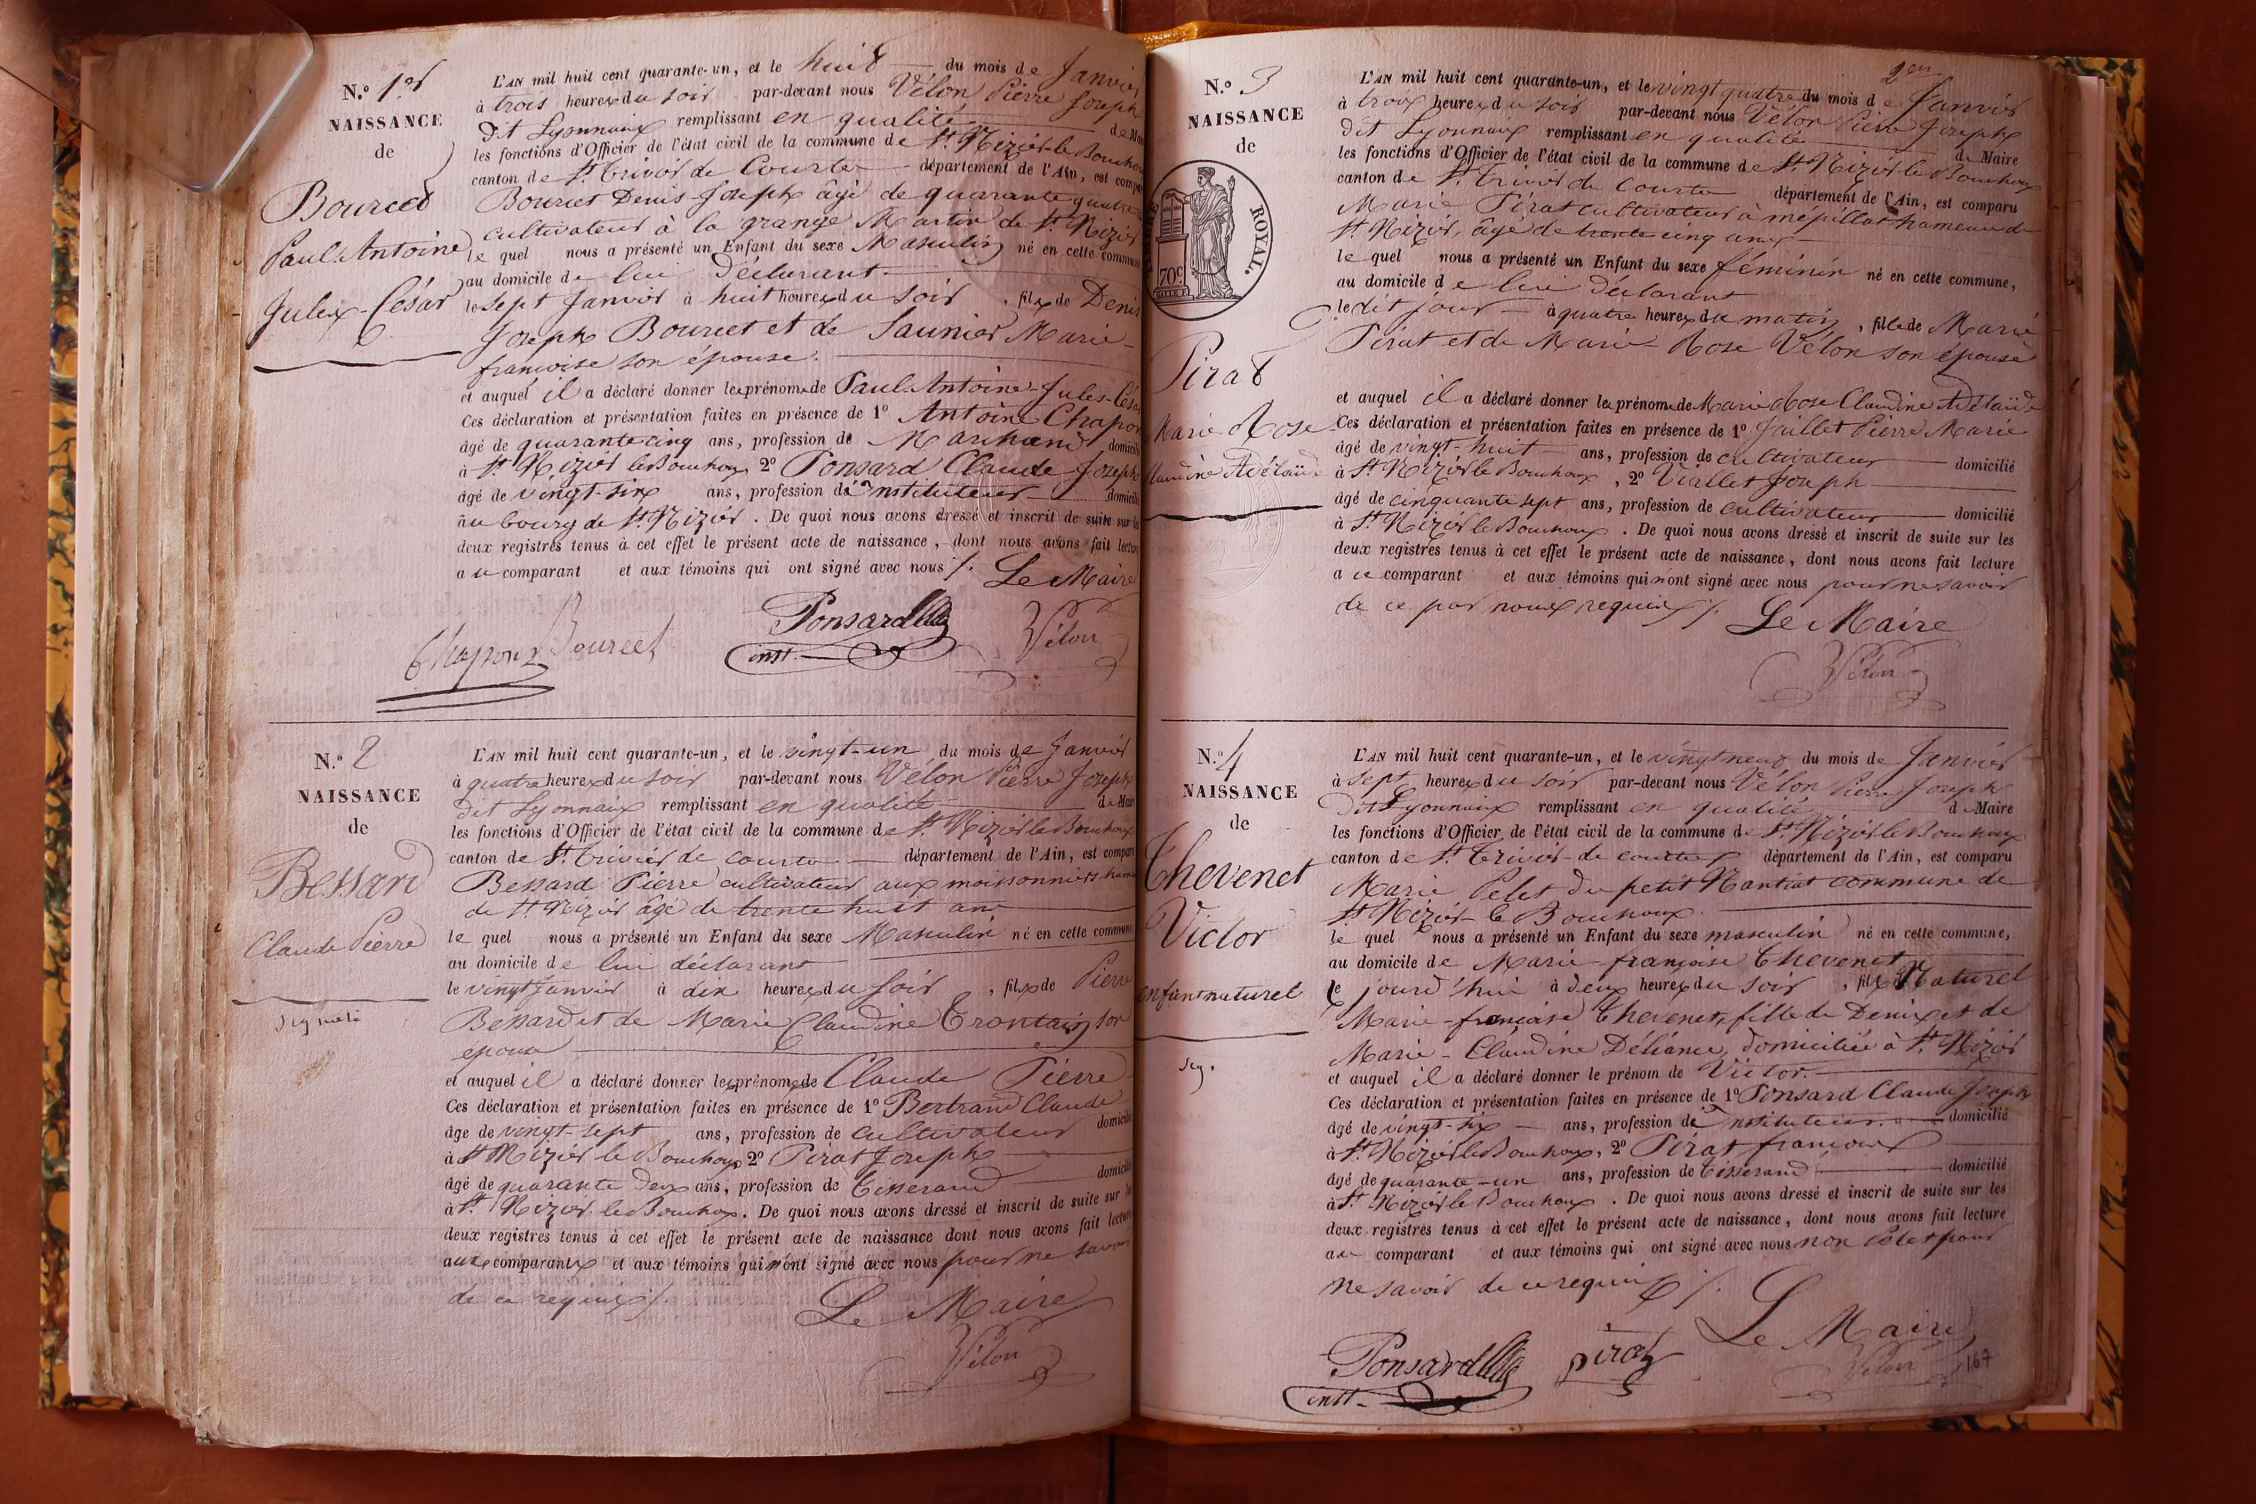 N.º 1er
NAISSANCE
de
Bourcet
Paul-Antoine
Jules-César
L'AN mil huit cent quarante-un, et le huit du mois de Janvier
à trois heures du soir par-devant nous Vélon Pierre Joseph
dit Lyonnaix remplissant en qualité de Mai
les fonctions d'Officier de l'état civil de la commune de St. Nizier le Bouchou
canton de St. Trivier de Courtes département de l'Ain, est compa
Bourcet Denis-Joseph âgé de quarante quatre
cultivateur à la grange Martin de St. Nizier
le quel nous a présenté un Enfant du sexe Masculin né en cette commune
au domicile de lui déclarant
le sept Janvier à huit heures du soir, fils de Denis
Joseph Bourcet et de Saunier Marie-
francoise son épouse.
et auquel il a déclaré donner les prénoms de Paul-Antoine-Jules-Cés
Ces déclaration et présentation faites en présence de 1º Antoine Chapon
âgé de quarante cinq ans, profession de Marchand domicilié
à St. Nizier le Bouchoux 2º Ponsard Claude Joseph
âgé de vingt-six ans, profession de Instituteur domicilié
au bourg de St. Nizier. De quoi nous avons dressé et inscrit de suite sur les
deux registres tenus à cet effet le présent acte de naissance, dont nous avons fait lecture
a ce comparant et aux témoins qui ont signé avec nous /.
Le Maire
Chapon Bourcet Ponsard Vélon
inst.
N.º 2
NAISSANCE
de
Bessard
Claude Pierre
signalé
L'AN mil huit cent quarante-un, et le vingt-un du mois de Janvier
à quatre heures du soir par-devant nous Vélon Pierre Joseph
dit Lyonnaix remplissant en qualité de Mair
les fonctions d'Officier de l'état civil de la commune de St. Nizier le Bouchoux
canton de St. Trivier de courte département de l'Ain, est compar
Bessard Pierre cultivateur aux moissonniers hame
de St. Nizier âgé de trente huit ans
le quel nous a présenté un Enfant du sexe Masculin né en cette commune
au domicile de lui déclarant
le vingt Janvier à dix heures du soir, fils de Pierre
Bessard et de Marie Claudine Trontain son
épouse
et auquel il a déclaré donner les prénoms de Claude Pierre
Ces déclaration et présentation faites en présence de 1º Bertrand Claude
âgé de vingt-sept ans, profession de cultivateur domicilié
à St Nizier le Bouchoux 2º Pirat Joseph
âgé de quarante deux ans, profession de Tisserand domicilié
à St. Nizier le Bouchoux. De quoi nous avons dressé et inscrit de suite sur les
deux registres tenus à cet effet le présent acte de naissance dont nous avons fait lecture
aux comparants et aux témoins qui n'ont signé avec nous pour ne savoir
de ce requis /.
Le Maire
Vélon
2en
N.º 3
NAISSANCE
de
ROYAL.
70c
Pirat
Marie Rose
Claudine Adélaïde
L'AN mil huit cent quarante-un, et le vingt quatre du mois de Janvier
à trois heures du soir par-devant nous Vélon Pierre Joseph
dit Lyonnaix remplissant en qualité de Maire
les fonctions d'Officier de l'état civil de la commune de St. Nizier le Bouchoux
canton de St. Trivier de Courte département de l'Ain, est comparu
Marie Pirat cultivateur à mépillat hameau de
St. Nizier, âgé de trente cinq ans
le quel nous a présenté un Enfant du sexe féminin né en cette commune,
au domicile de lui déclarant
le dit jour à quatre heures du matin, fille de Marie
Pirat et de Marie-Rose Vélon son épouse
et auquel il a déclaré donner les prénoms de Marie Rose Claudine Adélaïde
Ces déclaration et présentation faites en présence de 1º Jaillet Pierre Marie
âgé de vingt-huit ans, profession de cultivateur domicilié
à St. Nizier le Bouchoux, 2º Viallet Joseph
âgé de cinquante sept ans, profession de cultivateur domicilié
à St. Nizier le Bouchoux. De quoi nous avons dressé et inscrit de suite sur les
deux registres tenus à cet effet le présent acte de naissance, dont nous avons fait lecture
a ce comparant et aux témoins qui n'ont signé avec nous pour ne savoir
de ce par nous requis /.
Le Maire
Vélon
N.º 4
NAISSANCE
de
Thevenet
Victor
enfant naturel
sig.
L'AN mil huit cent quarante-un, et le vingt neuf du mois de Janvier
à sept heures du soir par-devant nous Vélon Pierre Joseph
dit Lyonnaix remplissant en qualité de Maire
les fonctions d'Officier de l'état civil de la commune de St. Nizier le Bouchoux
canton de St. Trivier-de courtes département de l'Ain, est comparu
Marie Pelet du petit Nantiat commune de
St Nizier-le Bouchoux.
le quel nous a présenté un Enfant du sexe masculin né en cette commune,
au domicile de Marie-françoise Thevenet,
le jourd'hui à deux heures du soir, fils Naturel
Marie-françoise Thevenet, fille de Denix et de
Marie-Claudine Déliance, domiciliée à St. Nizier
et auquel il a déclaré donner le prénom de Victor.
Ces déclaration et présentation faites en présence de 1º Ponsard Claude Joseph
âgé de vingt-six ans, profession de Instituteur domicilié
à St. Nizier le Bouchoux, 2º Pirat françois
âgé de quarante-un ans, profession de Tisserand domicilié
à St. Nizier le Bouchoux. De quoi nous avons dressé et inscrit de suite sur les
deux registres tenus à cet effet le présent acte de naissance, dont nous avons fait lecture
au comparant et aux témoins qui ont signé avec nous non Pelet pour
ne savoir de ce requis /.
Le Maire
Ponsard pirat Vélon
inst.
167